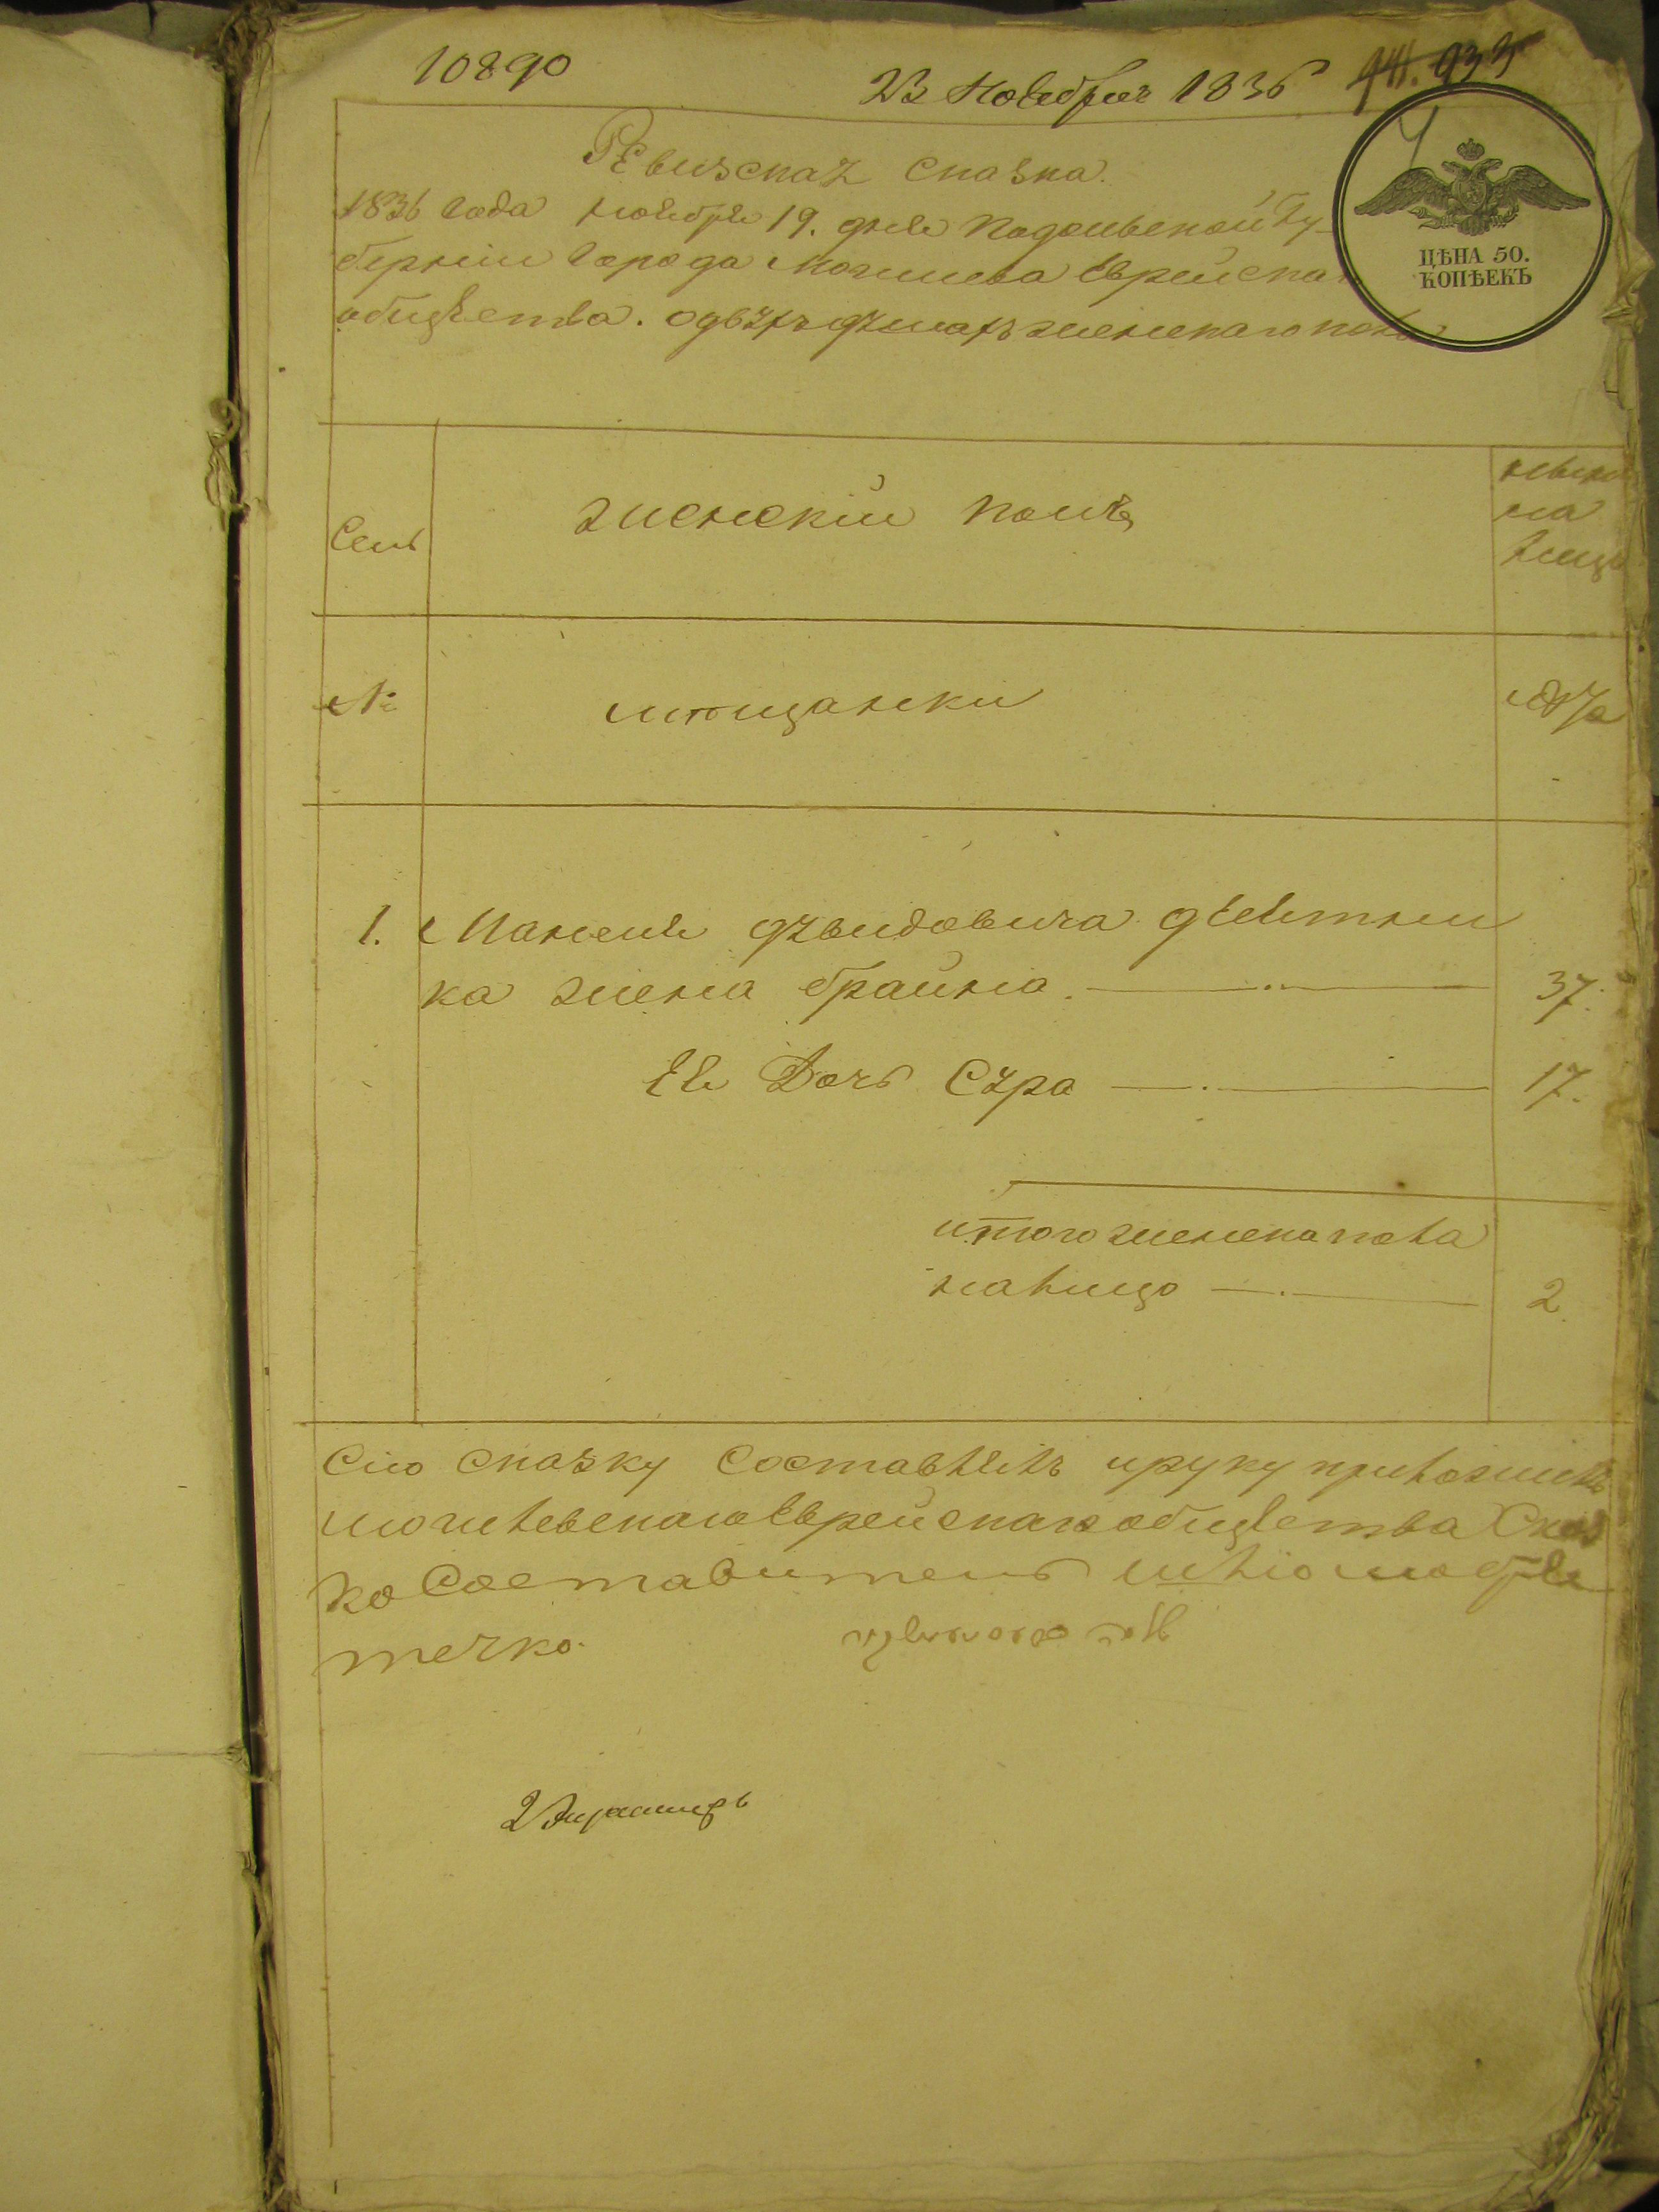 10890
23 Ноября 1836
933
Ревизская сказка.
1836 года ноября 19. дня Подольской Гу-
бернии города Могилева Еврейска
общества. одвухъ душахъ женскаго пола
ЦѢНА 50.
КОПѢЕКЪ
Семь
женскій полъ
ныне
на
лицо
№
мещанки
лета
1. Манеля двидовича
ка жена брайна. 37.
Ея Дочь Сура 17.
итого женска пола
налицо 2
Сию сказку Составлялъ ируку приложилъ
могилевскаго Еврейскаго общества Сказ
ко Составитель шлиома бря
течко.